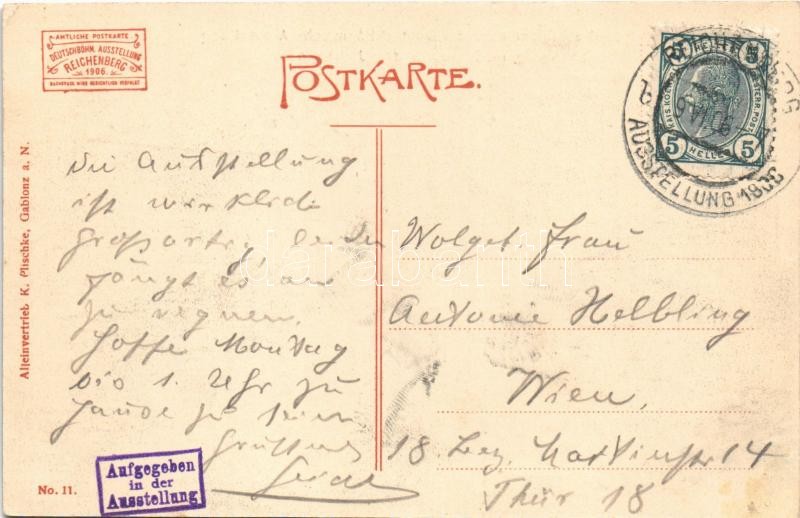 AMTLICHE POSTKARTE
DEUTSCHBÖHM. AUSSTELLUNG
REICHENBERG
1906.
NACHDRUCK WIRD GERICHTLICH VERFOLGT
POSTKARTE.
5 5
5 HELLER 5
REICHENBERG
AUSSTELLUNG 1906
Die Ausstellung
ist wirklich
großartig, leider
fängt es an
zu regnen.
Hoffe Montag
bis 1. Uhr zu
Hause zu sein
Wolgeb. Frau
Antonie Helbling
Wien,
18 Bez. 14
Thür 18
Alleinvertrieb K. Plischke, Gablonz a. N.
No. 11.
Aufgegeben
in der
Ausstellung
darabanth